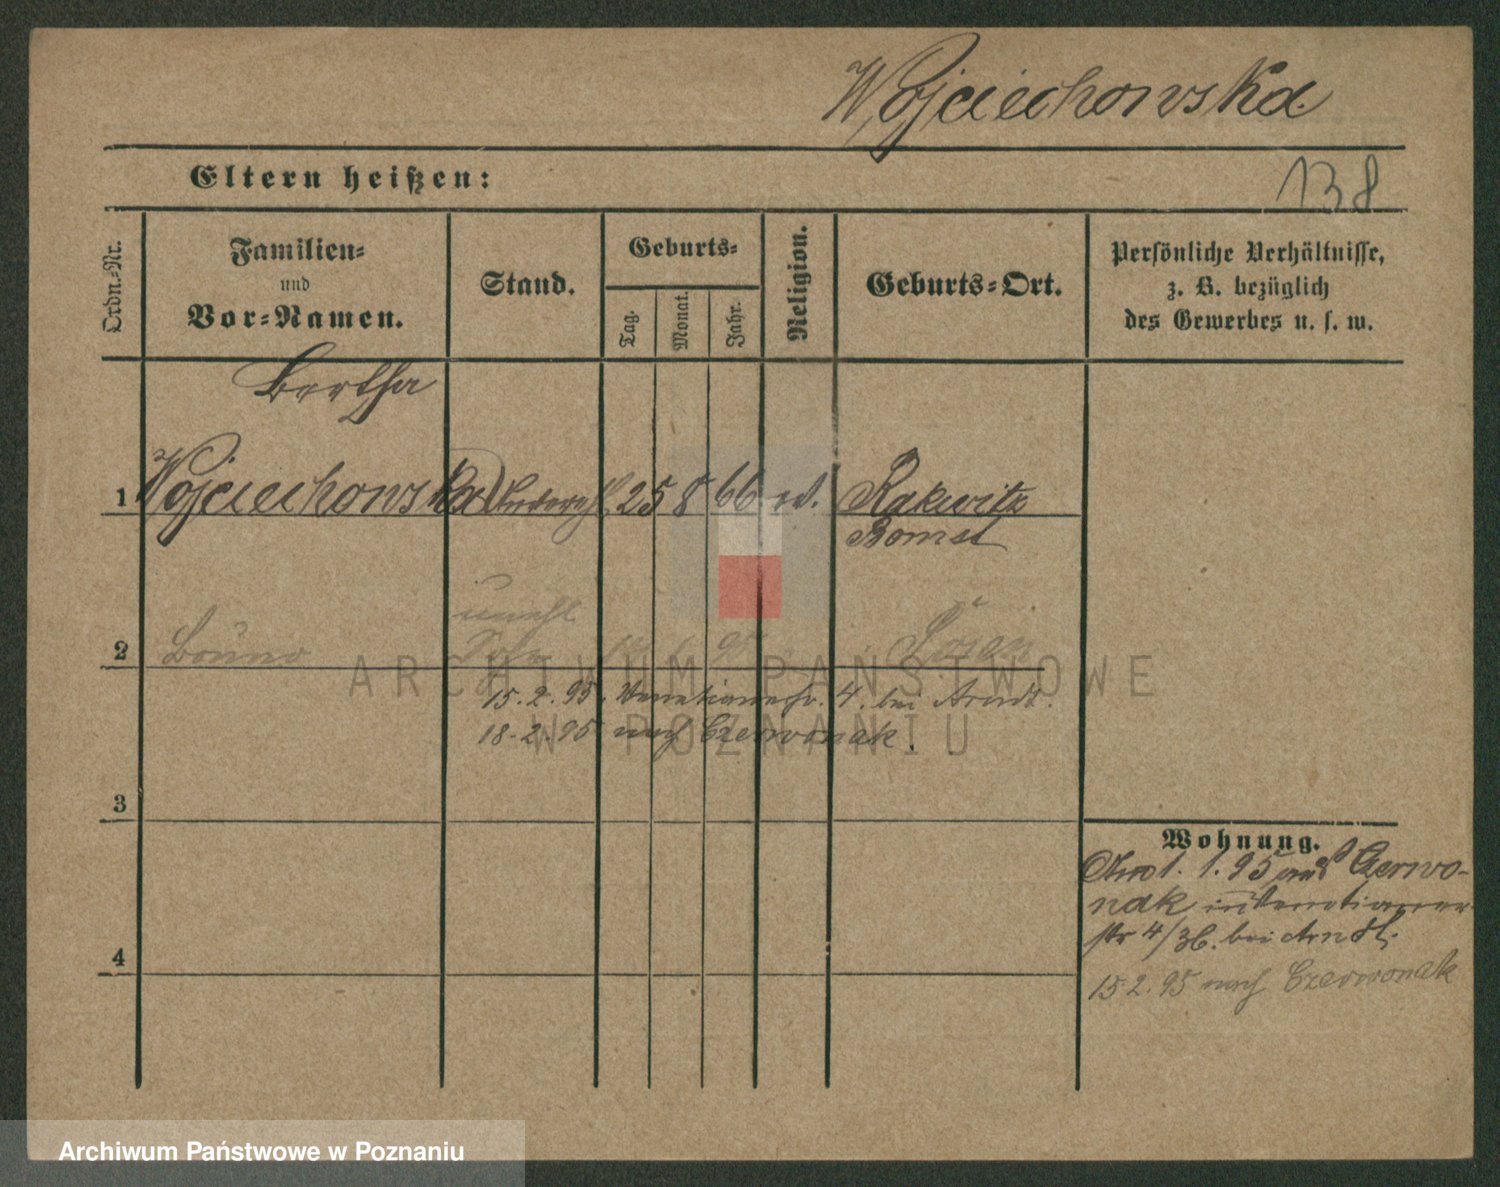 Wojciechowska
Eltern heißen:
138
Ordn.-Nr.
Familien-
und
Vor-Namen.
Stand.
Geburts-
Tag.
Monat.
Jahr.
Religion.
Geburts-Ort.
Persönliche Verhältnisse,
z. B. bezüglich
des Gewerbes u. s. w.
Bertha
1 Wojciechowska 25 8 66 Rakwitz
Bomst
unehl
2 Bruno Sohn Posen
ARCHIWUM PAŃSTWOWE
15.2.95. Venetianerstr. 4. bei Arndt.
18.2.95 nach Czerwonak.
W POZNANIU
3
Wohnung.
1.1.95 Czerwo-
nak Venetianer
str 4/36. bei Arndt.
4
15 2.95 nach Czerwonak
Archiwum Państwowe w Poznaniu